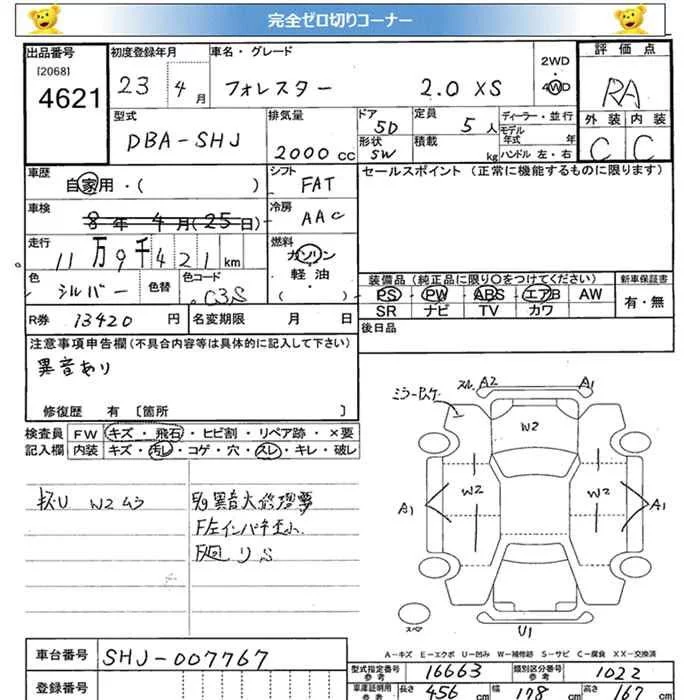 完全ゼロ切りコーナー
出品番号 初度登録年月 車名・グレード 2WD・4WD 評価点
[2068] 4621 23 4月 フォレスター 2.0 XS RA
型式 排気量 ドア 定員 ディーラー・並行 外装 内装
DBA-SHJ 2000cc 5D 5人 モデル年式 年 C C
形状 SW 積載 kg ハンドル 左・右
車歴 自家用・( ) シフト FAT セールスポイント (正常に機能するものに限ります)
車検 8年4月(25日) 冷房 AAC
走行 11万9千421km 燃料 ガソリン 軽油 ( )
色 シルバー 色替 色コード C3S 装備品 (純正品に限り○をつけてください) 新車保証書
PS PW ABS エアB AW 有・無
SR ナビ TV カワ
R券 13420円 名変期限 月 日 後日品
注意事項申告欄(不具合内容等は具体的に記入して下さい)
異音あり
修復歴 有 〔箇所 〕
検査員 FW キズ・飛石・ヒビ割・リペア跡・×要
記入欄 内装 キズ・汚レ・コゲ・穴・スレ・キレ・破レ
W2ムラ
異音大修理要
F左インパネ
リS
A2 A1
W2
A1 W2 W2 A1
スペア U1
A-キズ E-エクボ U-凹み W-補修跡 S-サビ C-腐食 XX-交換済
車台番号 SHJ-007767
型式指定番号 参考 16663 類別区分番号 参考 1022
登録番号 車庫証明用 参考 長さ 456cm 幅 178cm 高さ 167cm